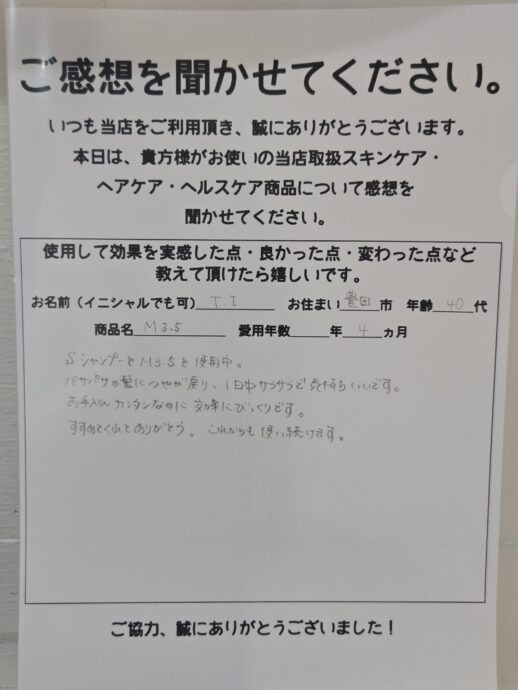 ご感想を聞かせてください。
いつも当店をご利用頂き、誠にありがとうございます。
本日は、貴方様がお使いの当店取扱スキンケア・
ヘアケア・ヘルスケア商品について感想を
聞かせてください。
使用して効果を実感した点・良かった点・変わった点など
教えて頂けたら嬉しいです。
お名前（イニシャルでも可） T.I お住まい 豊田 市 年齢 40 代
商品名 M3.5 愛用年数 年 4 ヵ月
SシャンプーとM3.5を使用中。
パサパサの髪につやが戻り、1日中サラサラで気持ちいいです。
お手入れカンタンなのに効果にびっくりです。
すすめてくれてありがとう。これからも使い続けます。
ご協力、誠にありがとうございました！